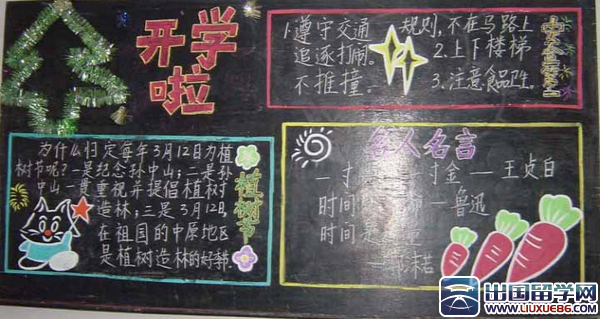 开学
啦
1.遵守交通规则,不在马路上
追逐打闹。2.上下楼梯
不推撞。3.注意食品卫生。
为什么归定每年3月12日为植
树节呢?一是纪念孙中山;二是孙
中山一直重视并提倡植树
造林;三是3月12日,
在祖国的中原地区
是植树造林的好季节。
植树节
名人名言
一寸 一寸金 — 王贞白
时间 — 鲁迅
时间是
出国留学网
www.liuxue86.com